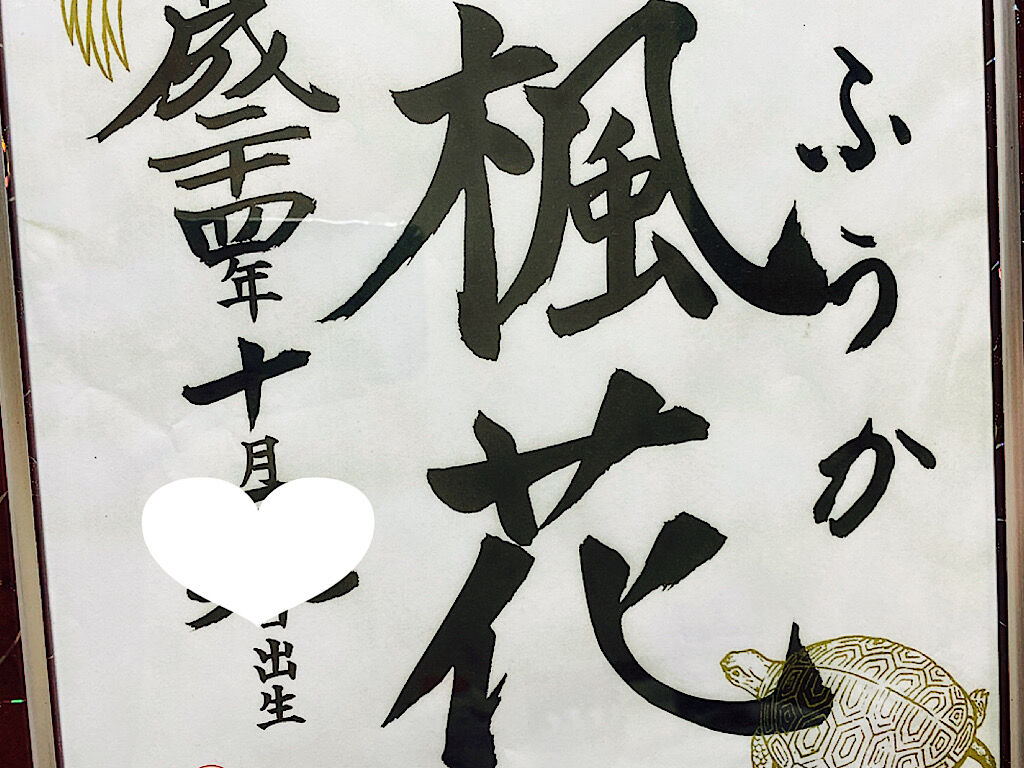 ふうか
楓花
成二十四年十月
出生